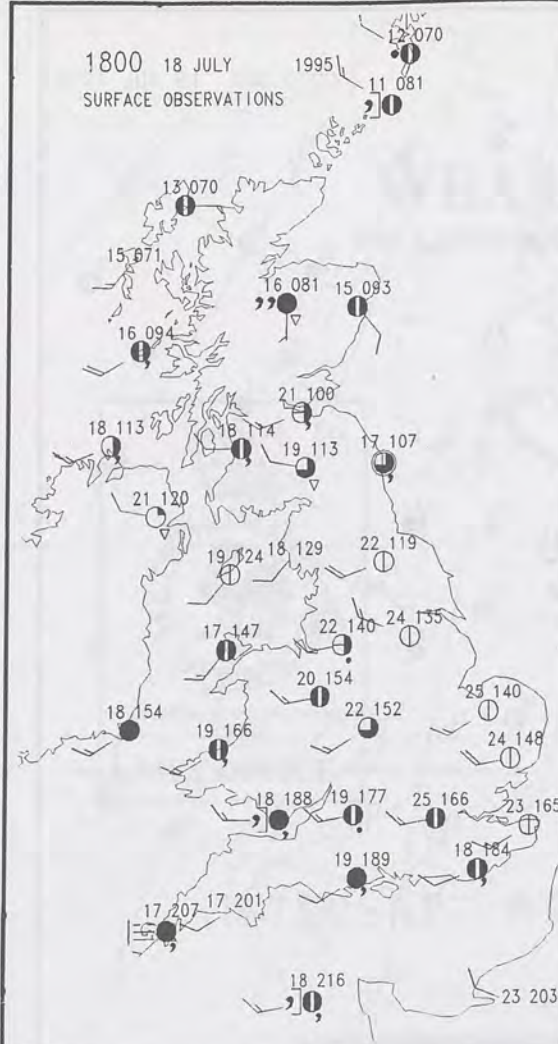 12 070
1800 18 JULY 1995
SURFACE OBSERVATIONS
11 081
13 070
15 071
16 081
15 093
16 094
21 100
18 113
18 114
19 113
17 107
21 120
19 124
18 129
22 119
24 135
17 147
22 140
25 140
20 154
18 154
22 152
19 166
24 148
18 188
19 177
25 166
23 165
18 184
19 189
17 207
17 201
18 216
23 203